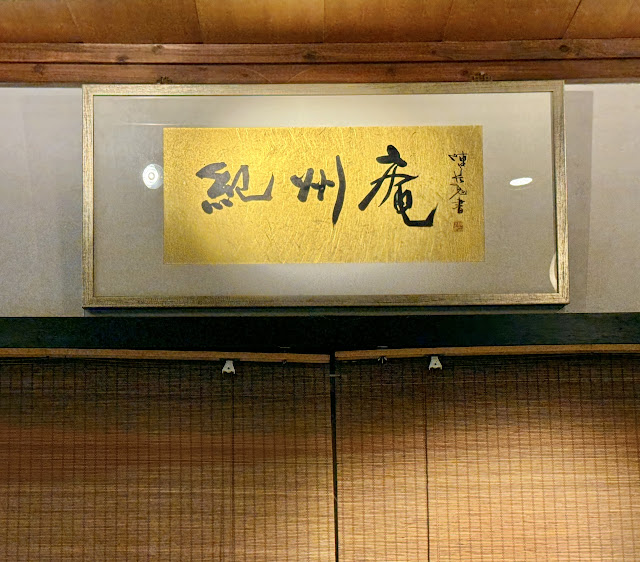 紀州庵
陳 書